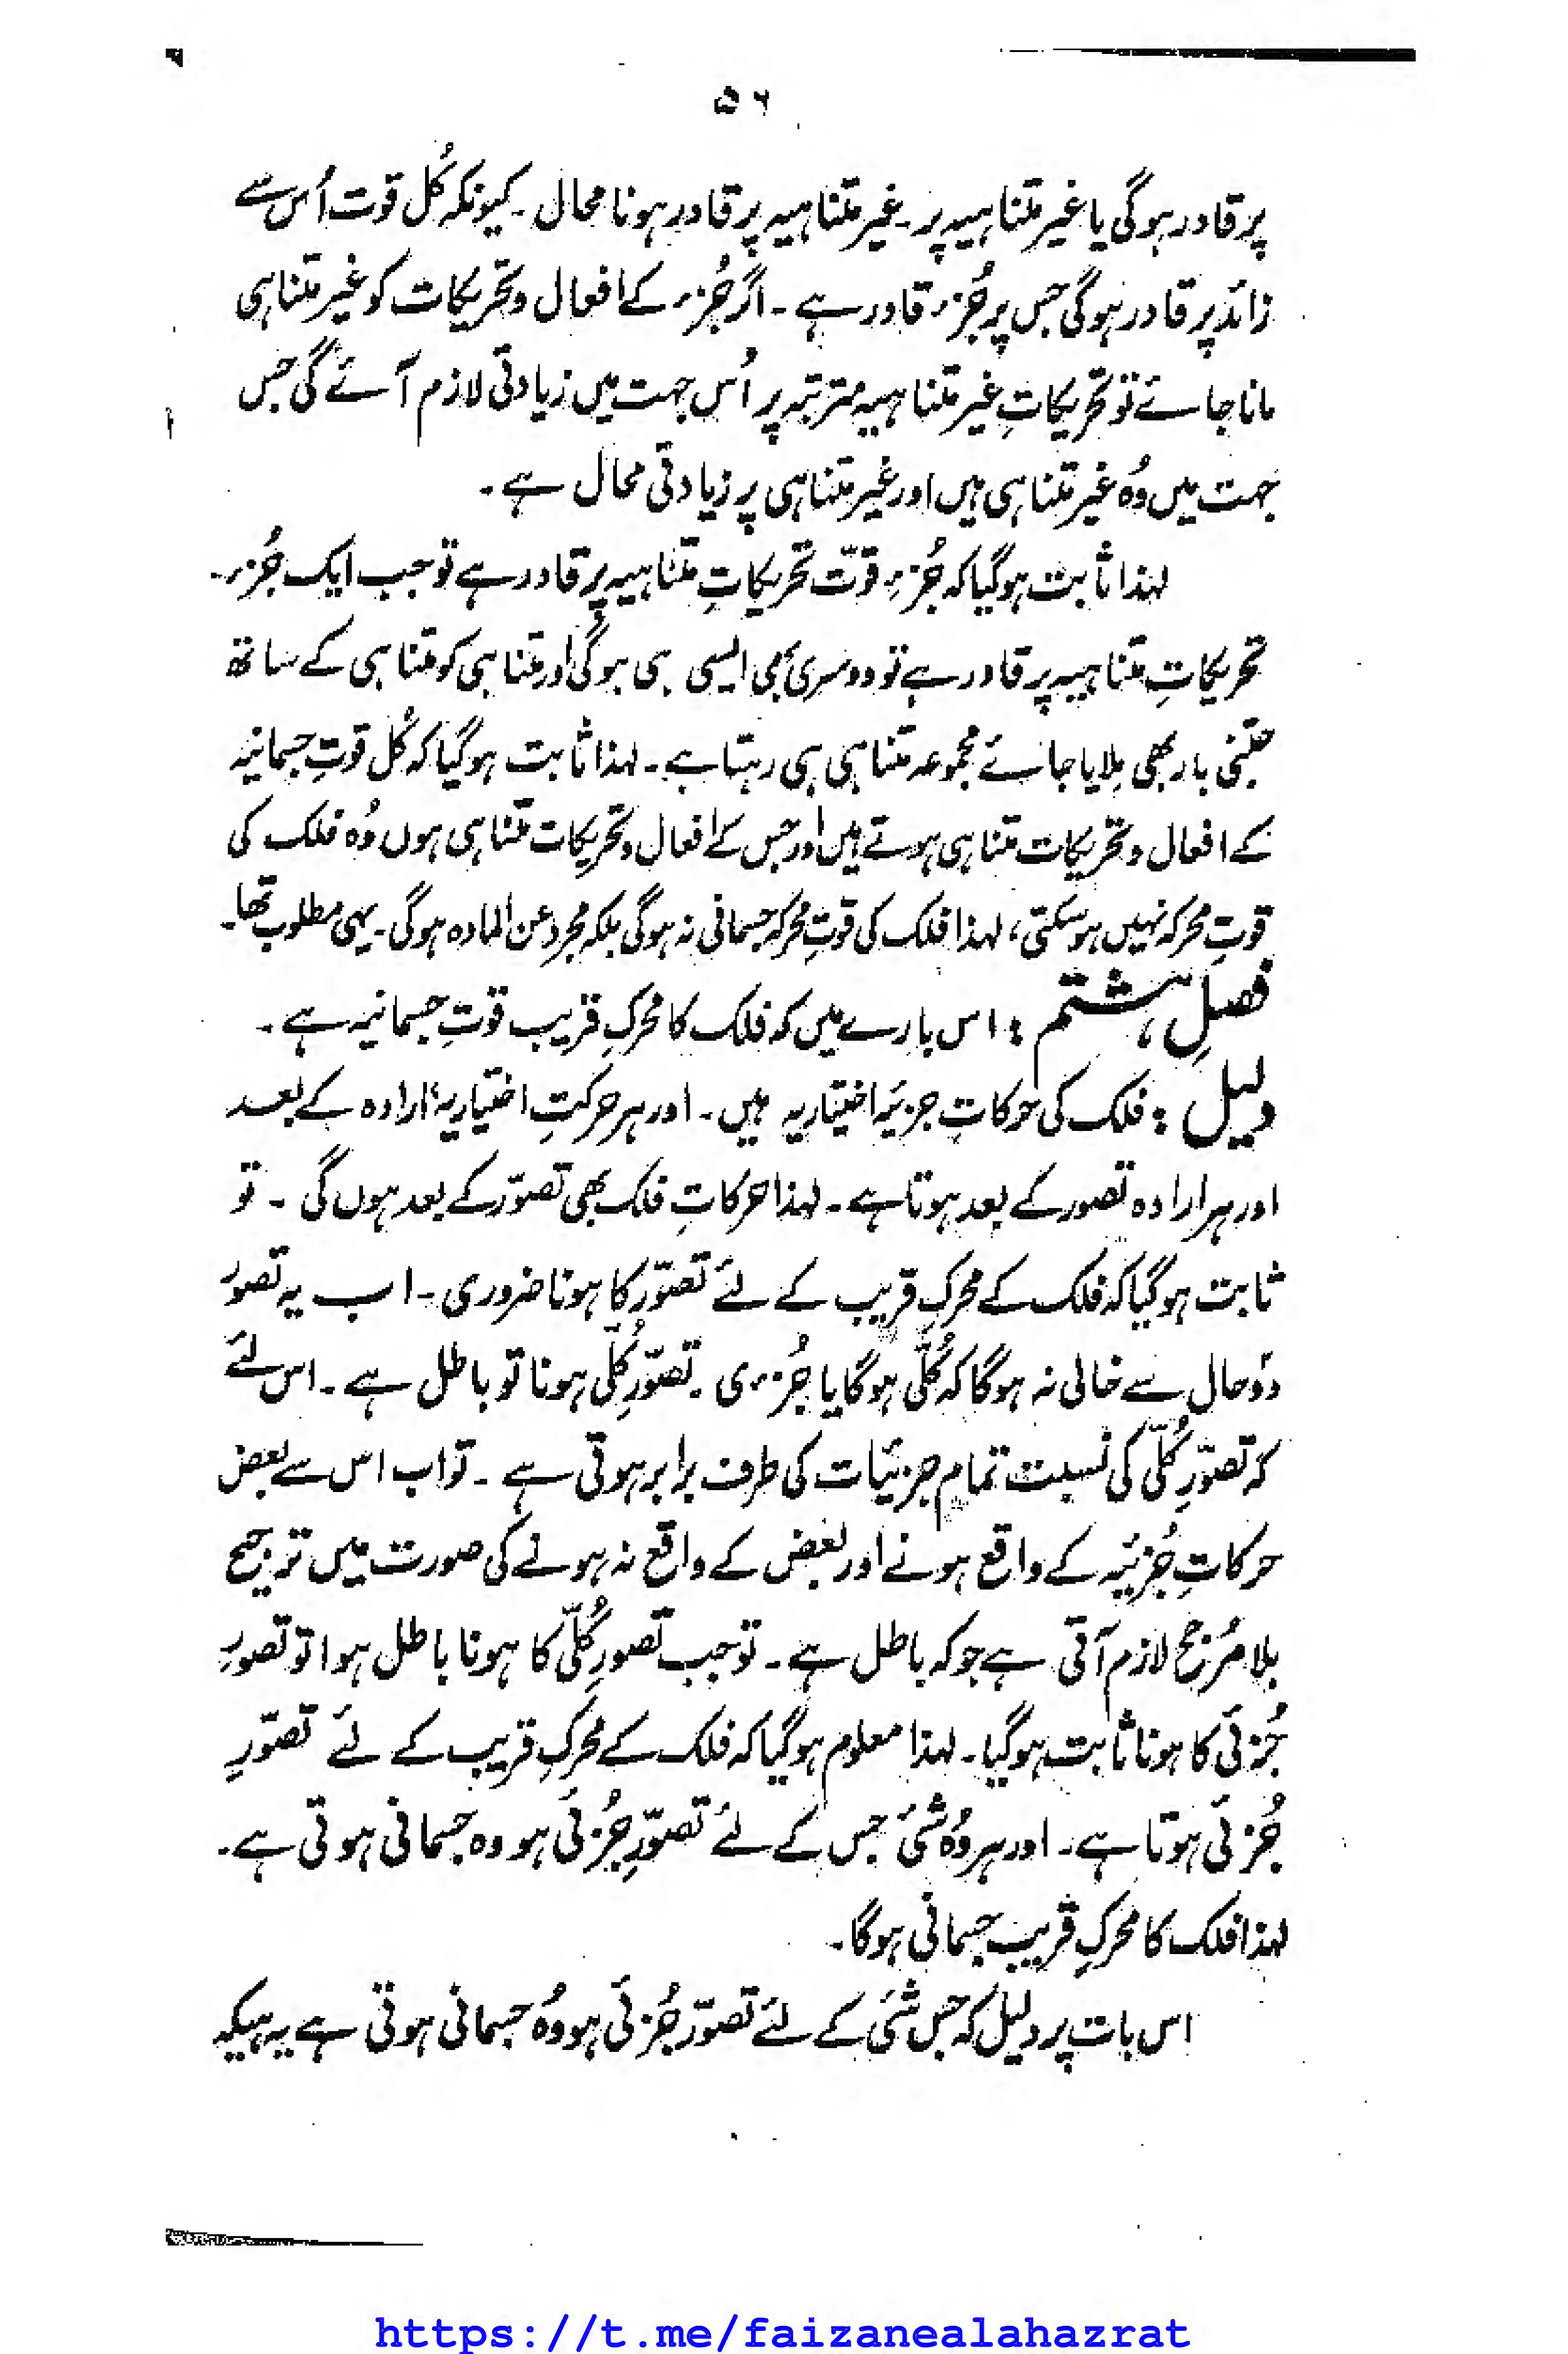 ۵۶
پر قادر ہوگی یا غیر متناہیہ پر۔ غیر متناہیہ پر قادر ہونا محال۔ کیونکہ کُل قوت اُس سے
زائد پر قادر ہوگی جس پر جُزء قادر ہے۔ اگر جُزء کے افعال و تحریکات کو غیر متناہی
مانا جائے تو تحریکاتِ غیر متناہیہ مترتبہ پر اُس جہت میں زیادتی لازم آئے گی جس
جہت میں وُہ غیر متناہی ہیں اور غیر متناہی پر زیادتی محال ہے۔
لہذا ثابت ہوگیا کہ جُزءِ قوّت تحریکاتِ متناہیہ پر قادر ہے تو جب ایک جُزء
تحریکاتِ متناہیہ پر قادر ہے تو دوسری بھی ایسی ہی ہوگی اور متناہی کو متناہی کے ساتھ
جتنی بار بھی مِلایا جائے مجموعہ متناہی ہی رہتا ہے۔ لہذا ثابت ہوگیا کہ کُل قوتِ جسمانیہ
کے افعال و تحریکات متناہی ہوتے ہیں اور جس کے افعال و تحریکات متناہی ہوں وُہ فلک کی
قوتِ محرکہ نہیں ہوسکتی، لہذا فلک کی قوتِ محرکہ جسمانی نہ ہوگی بلکہ مجرد عن المادہ ہوگی۔ یہی مطلوب تھا۔
فصلِ ہشتم : اس بارے میں کہ فلک کا محرکِ قریب قوتِ جسمانیہ ہے۔
دلیل : فلک کی حرکاتِ جزئیہ اختیاریہ ہیں۔ اور ہر حرکتِ اختیاریہ ارادہ کے بعد
اور ہر ارادہ تصور کے بعد ہوتا ہے۔ لہذا حرکاتِ فلک بھی تصوّر کے بعد ہوں گی۔ تو
ثابت ہوگیا کہ فلک کے محرکِ قریب کے لئے تصوّر کا ہونا ضروری۔ اب یہ تصور
دوحال سے خالی نہ ہوگا کہ کُلّی ہوگا یا جُزءی۔ تصوّرِ کُلّی ہونا تو باطل ہے۔ اس لئے
کہ تصوّرِ کُلّی کی نسبت تمام جزئیات کی طرف برابر ہوتی ہے۔ تو اب اس سے بعض
حرکاتِ جُزئیہ کے واقع ہونے اور بعض کے واقع نہ ہونے کی صورت میں ترجیح
بلا مُرجح لازم آتی ہے جو کہ باطل ہے۔ تو جب تصورِ کُلّی کا ہونا باطل ہوا تو تصورِ
جُزئی کا ہونا ثابت ہوگیا۔ لہذا معلوم ہوگیا کہ فلک کے محرکِ قریب کے لئے تصوّرِ
جُزئی ہوتا ہے۔ اور ہر وُہ شئ جس کے لئے تصوّرِ جُزئی ہو وہ جسمانی ہوتی ہے۔
لہذا فلک کا محرکِ قریب جسمانی ہوگا۔
اس بات پر دلیل کہ جس شئ کے لئے تصوّر جُزئی ہو وُہ جسمانی ہوتی ہے یہ ہیکہ
https://t.me/faizanealahazrat